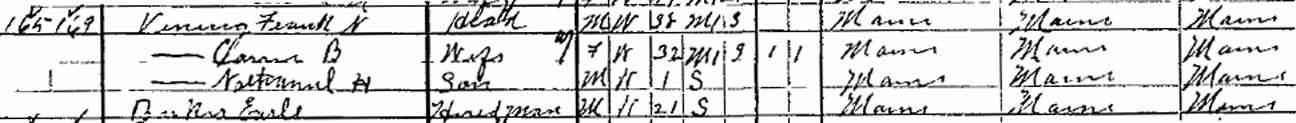 165 169 Vining Frank N Head M W 38 M1 3 Maine Maine Maine
— B Wife F W 32 M1 3 1 1 Maine Maine Maine
— Nathaniel H Son M W 1 S Maine Maine Maine
Earle Hired man M W 21 S Maine Maine Maine